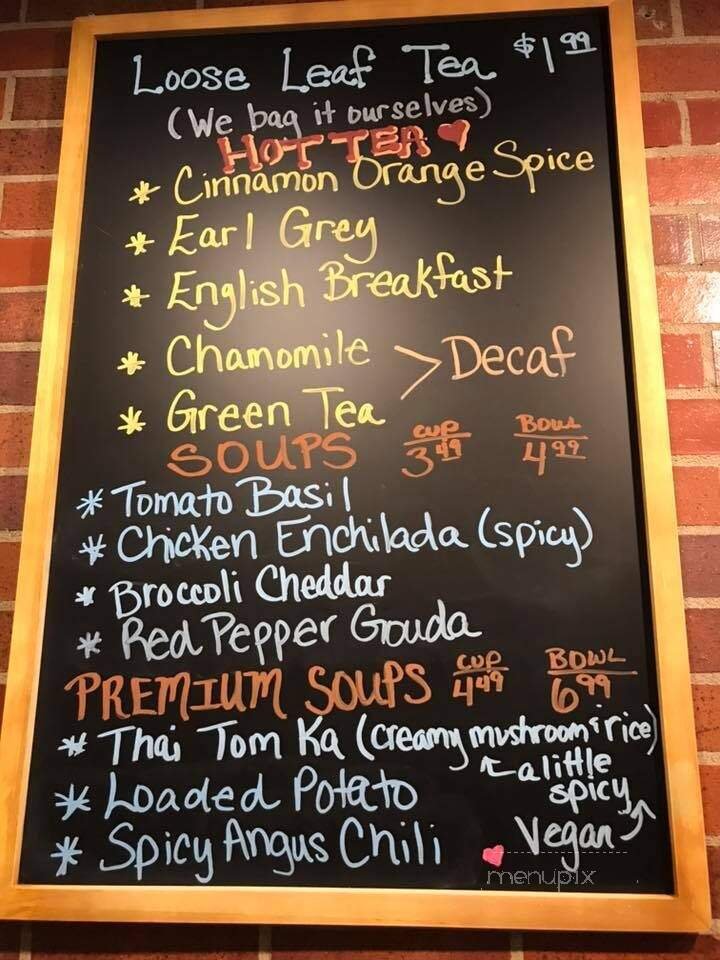 Loose Leaf Tea $1.99
(We bag it ourselves)
HOT TEA
* Cinnamon Orange Spice
* Earl Grey
* English Breakfast
* Chamomile > Decaf
* Green Tea
SOUPS CUP 3.49 BOWL 4.99
* Tomato Basil
* Chicken Enchilada (spicy)
* Broccoli Cheddar
* Red Pepper Gouda
PREMIUM SOUPS CUP 4.49 BOWL 6.99
* Thai Tom Ka (creamy mushroom & rice)
a little
spicy
* Loaded Potato
* Spicy Angus Chili
Vegan
menupix